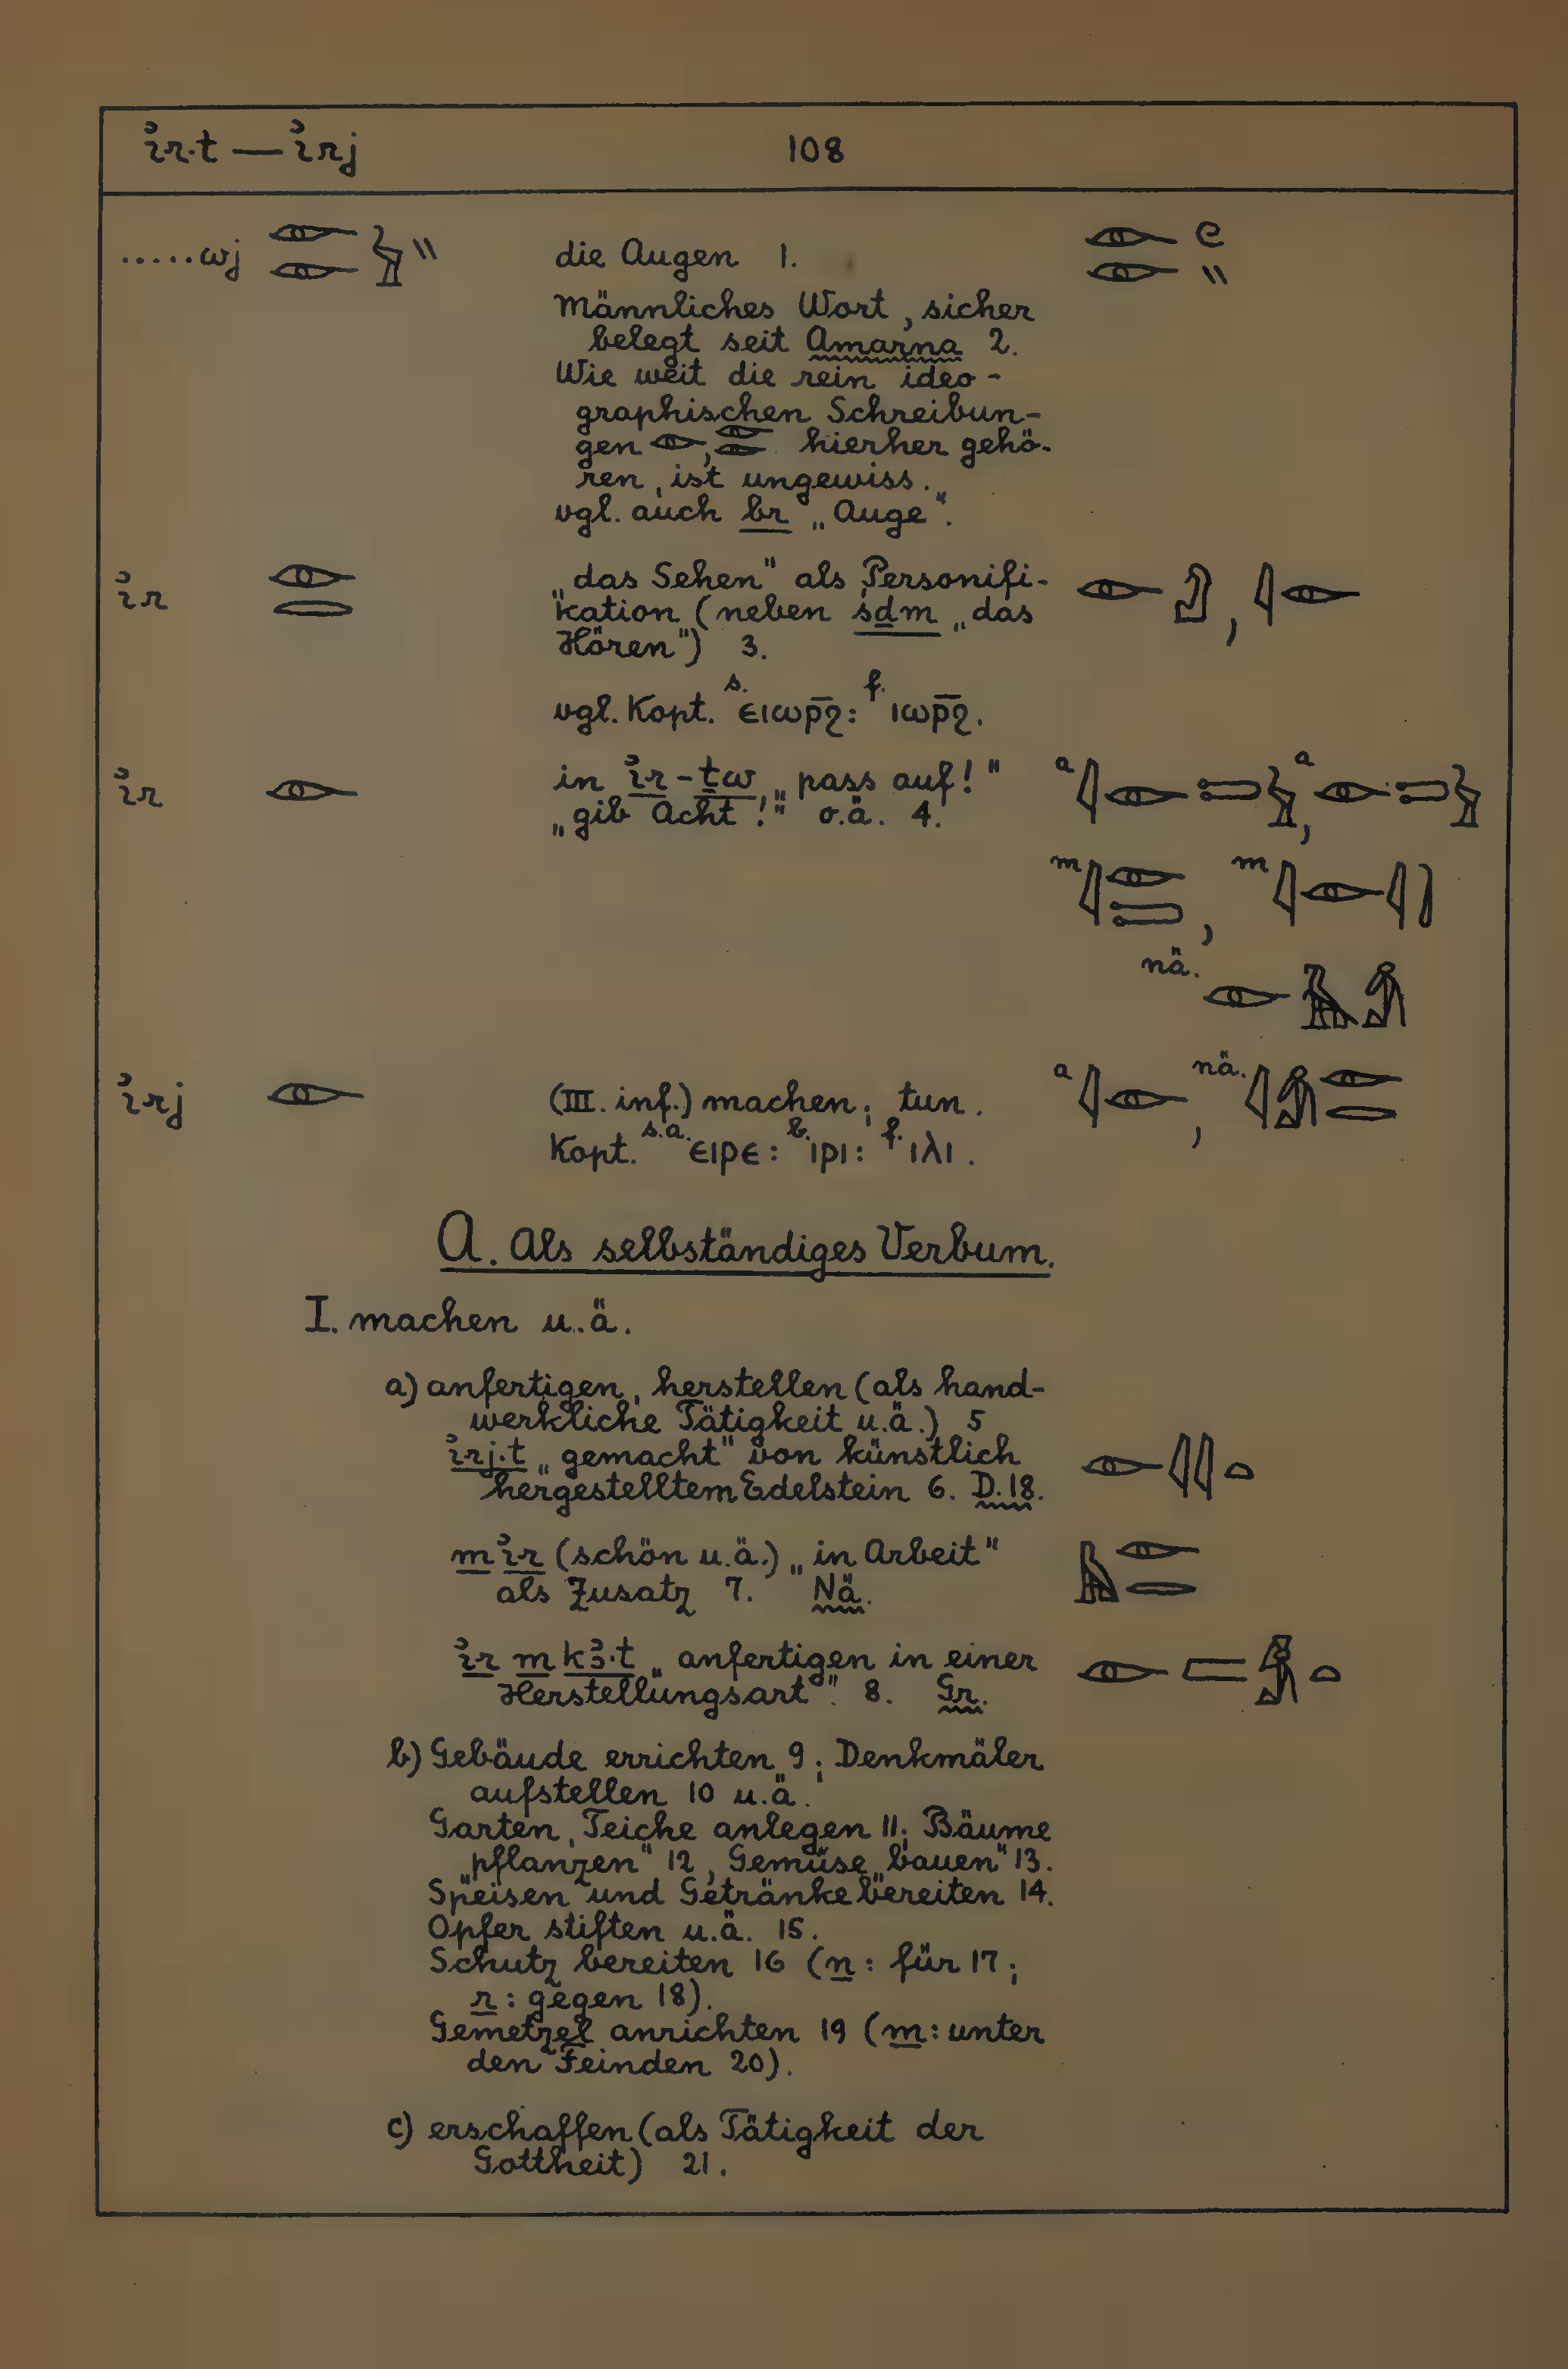 ı͗r.t — ı͗rj 108
.....wj 𓁹𓁹𓅱𓏭 die Augen 1. 𓁹𓁹𓏲𓏭
Männliches Wort, sicher
belegt seit Amarna 2.
Wie weit die rein ideo-
graphischen Schreibun-
gen 𓁹, 𓁹𓁹 hierher gehö-
ren, ist ungewiss.
vgl. auch br „Auge".
ı͗r 𓁹𓂋 „das Sehen" als Personifi-
kation (neben śḏm „das
Hören") 3.
vgl. Kopt. s. ⲉⲓⲱⲣ̅ϩ: f. ⲓⲱⲣ̅ϩ.
ı͗r 𓁹 in ı͗r-ṯw „pass auf!"
„gib Acht!" o.ä. 4.
m 𓇋𓁹𓍿, m 𓇋𓁹𓇋
nä.
ı͗rj 𓁹 (III. inf.) machen; tun. a 𓇋𓁹, nä. 𓇋𓀁𓁹𓂋
Kopt. s.a. ⲉⲓⲣⲉ: b. ⲓⲣⲓ: f. ⲓⲗⲓ.
A. Als selbständiges Verbum.
I. machen u.ä.
a) anfertigen, herstellen (als hand-
werkliche Tätigkeit u.ä.) 5
ı͗rj.t „gemacht" von künstlich 𓁹𓇋𓇋𓏏
hergestelltem Edelstein 6. D.18.
m ı͗r (schön u.ä.) „in Arbeit" 𓅓𓁹𓂋
als Zusatz 7. Nä.
ı͗r m kꜣ.t „anfertigen in einer 𓁹𓐝𓀋𓏏
Herstellungsart". 8. Gr.
b) Gebäude errichten 9; Denkmäler
aufstellen 10 u.ä.
Garten, Teiche anlegen 11; Bäume
„pflanzen" 12, Gemüse „bauen" 13.
Speisen und Getränke bereiten 14.
Opfer stiften u.ä. 15.
Schutz bereiten 16 (n: für 17;
r: gegen 18).
Gemetzel anrichten 19 (m: unter
den Feinden 20).
c) erschaffen (als Tätigkeit der
Gottheit) 21.